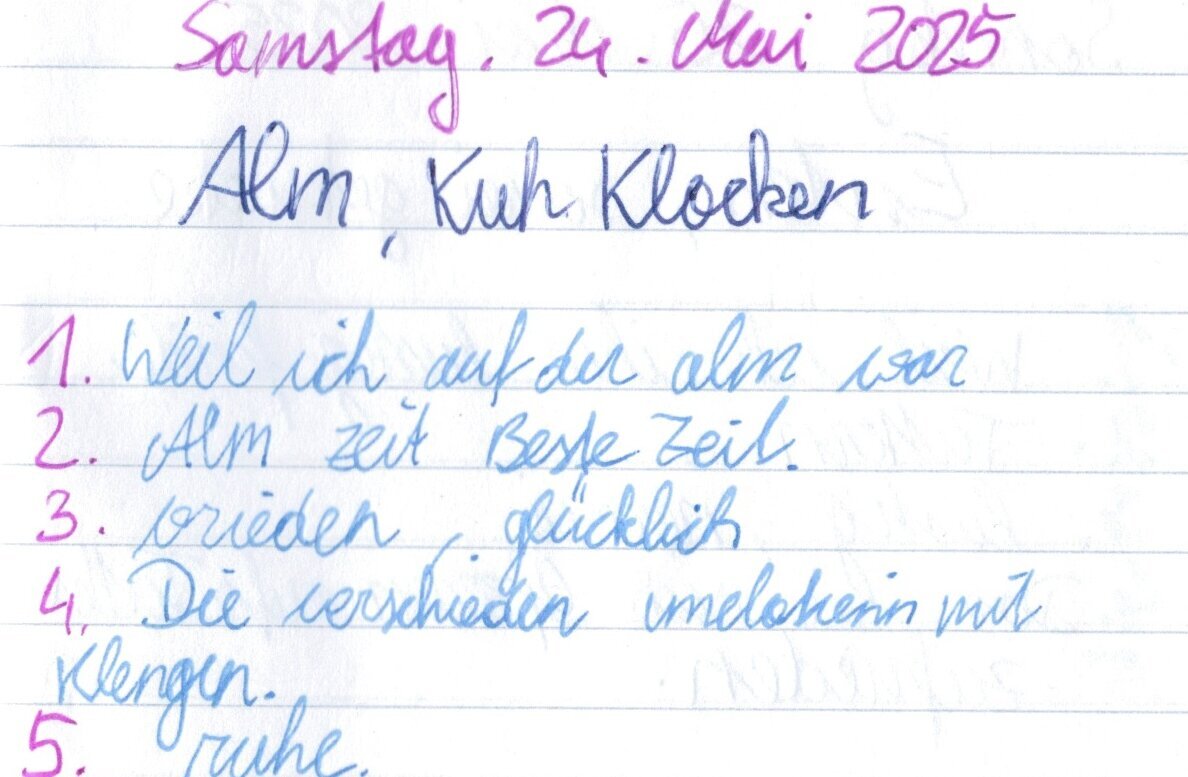 Samstag, 24. Mai 2025
Alm, Kuh Klocken
1. Weil ich auf der alm war
2. Alm zeit Beste Zeit.
3. vrieden, glücklich
4. Die verschieden mit
Klengen.
5. ruhe.